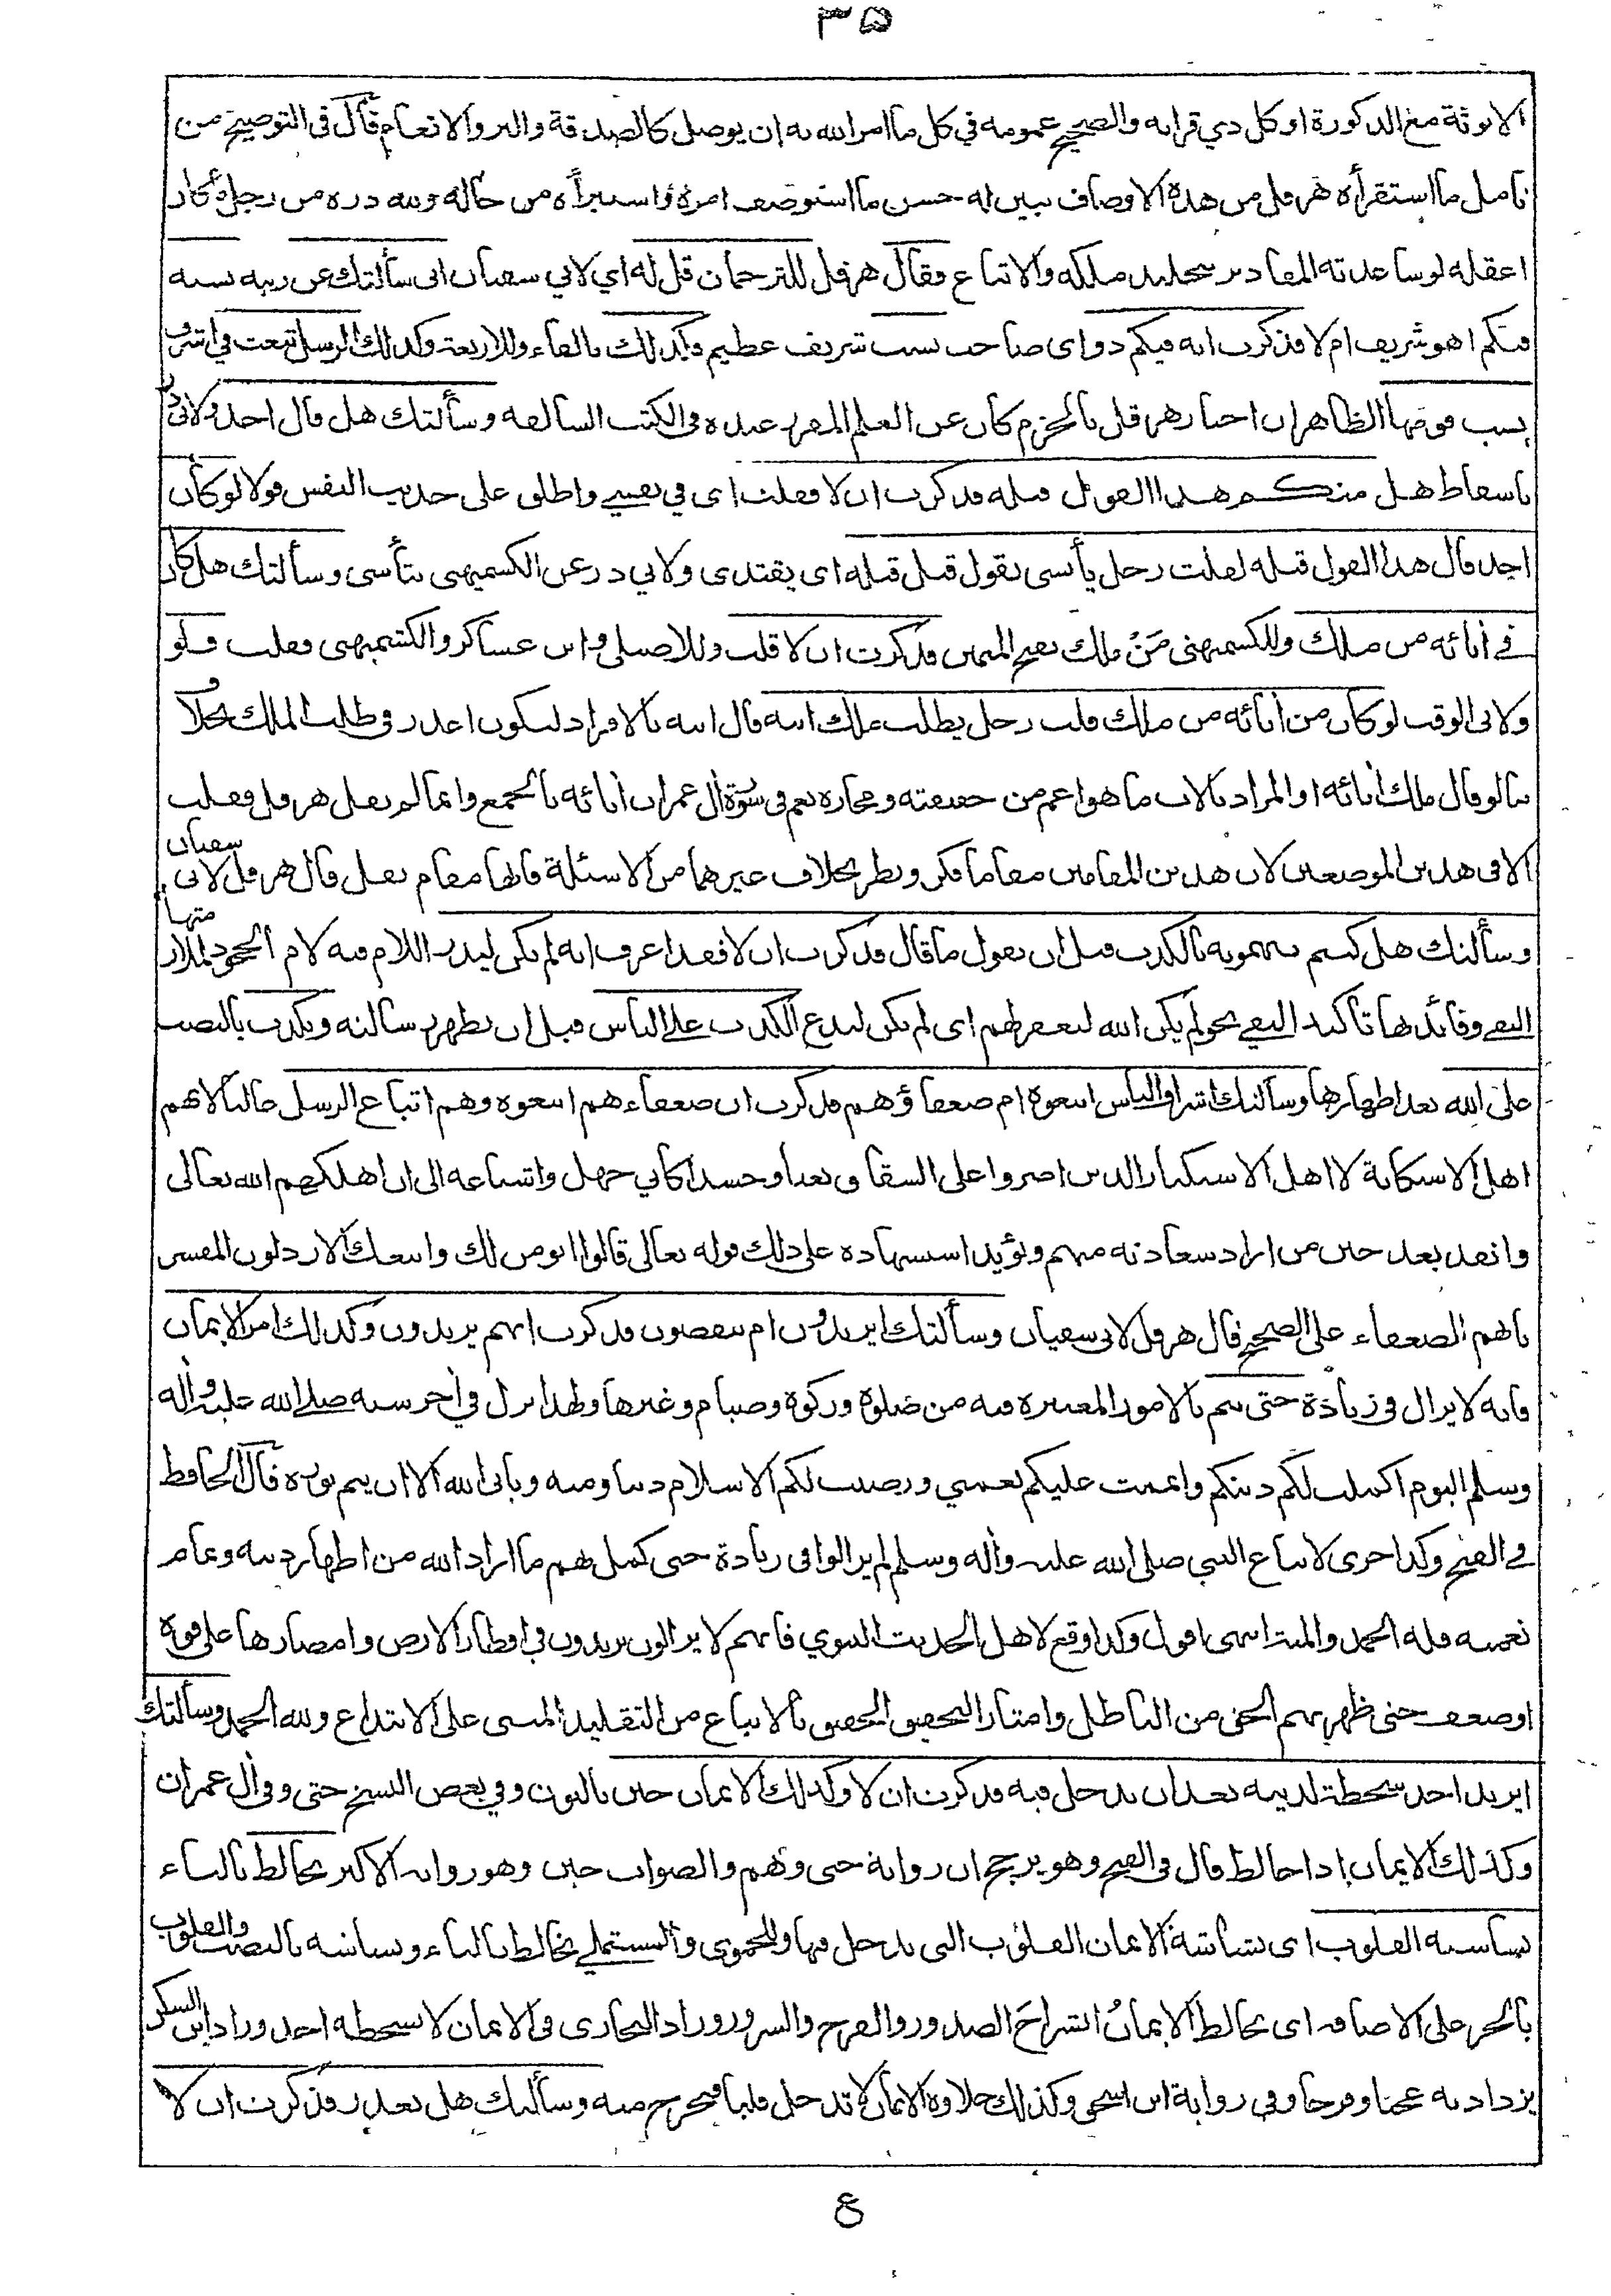 ٣٥
الانوثة مع الذكورة او كل ذي قرابة والصحيح عمومه في كل ما امر الله به ان يوصل كالصدقة والبر والانعام قال في التوضيح من
تامل ما استقرأه هرقل من هذه الاوصاف تبين له حسن ما استوصف امره واستبرأه من حاله ولله دره من رجل ما كان
اعقله لو ساعدته المقادير بتخليد ملكه والاتباع فقال هرقل للترجمان قل له اي لابي سفيان اني سألتك عن رتبة نسبه
فيكم اهو شريف ام لا فذكرت انه فيكم ذو اى صاحب نسب شريف عظيم فكذلك بالفاء وللاربعة وكذلك الرسل تبعث في اشرف
نسب قومها الظاهر ان اخبار هرقل بالجزم كان عن العلم المقرر عنده في الكتب السالفة وسألتك هل قال احد ولابي ذر
باسقاط هل منكم هذا القول قبله فذكرت ان لا فقلت اى في نفسي واطلق على حديث النفس قولا لو كان
احد قال هذا القول قبله لقلت رجل يأتسى بقول قيل قبله اى يقتدى ولابي ذر عن الكشميهنى يتأسى وسألتك هل كان
في أبائه من ملك وللكشميهنى مَنْ ملك بفتح الميمين فذكرت ان لا قلت وللاصيلى وابن عساكر والكشميهنى فقلت فلو
ولابى الوقت لو كان من أبائه من ملك قلت رجل يطلب ملك ابيه قال ابيه بالافراد ليكون اعذر في طلب الملك بخلاف
ما لو قال ملك أبائه او المراد بالاب ما هو اعم من حقيقته ومجازه نعم في سورة أل عمران أبائه بالجمع وانما لم يقل هرقل فقلت
الا في هذين الموضعين لان هذين المقامين مقاما فكر ونظر بخلاف غيرهما من الاسئلة فانها مقام نقل قال هرقل لابى سفيان
وسألتك هل كنتم تتهمونه بالكذب قبل ان يقول ما قال فذكرت ان لا فقد اعرف انه لم يكن ليذر اللام فيه لام الجحود لملازمتها
النفي وفائدتها تأكيد النفي نحو لم يكن الله ليغفر لهم اى لم يكن ليدع الكذب على الناس قبل ان يظهر رسالته ويكذب بالنصب
على الله بعد اظهارها وسألتك اشراف الناس اتبعوه ام ضعفاؤهم فذكرت ان ضعفاءهم اتبعوه وهم اتباع الرسل غالبا لانهم
اهل الاستكانة لا اهل الاستكبار الذين اصروا على الشقاق بغيا وحسدا كابي جهل واشياعه الى ان اهلكهم الله تعالى
وانقذ بعد حين من اراد سعادته منهم ويؤيد استشهاده على ذلك قوله تعالى قالوا انومن لك واتبعك الارذلون المفسر
بانهم الضعفاء على الصحيح قال هرقل لابى سفيان وسألتك ايزيدون ام ينقصون فذكرت انهم يزيدون وكذلك امر الايمان
فانه لا يزال في زيادة حتى يتم بالامور المعتبرة فيه من صلوة وزكوة وصيام وغيرها ولهذا نزل في أخر سنيه صلى الله عليه وأله
وسلم اليوم اكملت لكم دينكم واتممت عليكم نعمتي ورضيت لكم الاسلام دينا ومنه ويأبى الله الا ان يتم نوره قال الحافظ
في الفتح وكذا جرى لاتباع النبي صلى الله عليه وأله وسلم لم يزالوا في زيادة حتى كمل بهم ما اراد الله من اظهار دينه وتمام
نعمته فله الحمد والمنة انتهى اقول وكذا وقع لاهل الحديث النبوي فانهم لا يزالون يزيدون في اقطار الارض وامصارها على قوة
او ضعف حتى ظهر بهم الحق من الباطل وامتاز التحقيق الحقيق بالاتباع من التقليد المبنى على الابتداع ولله الحمد وسألتك
ايرتد احد سخطة لدينه بعد ان يدخل فيه فذكرت ان لا وكذلك الايمان حين بالنون وفي بعض النسخ حتى وفي أل عمران
وكذلك الايمان اذا خالط قال في الفتح وهو يرجح ان رواية حتى وَهْم والصواب حين وهو رواية الاكثر يخالط بالياء
بشاشته القلوب اى بشاشة الايمان القلوب التى يدخل فيها وللحموى والمستملي تخالط بالتاء وبشاشة بالنصب والقلوب
بالجر على الاضافة اى تخالط الايمانُ انشراحَ الصدور والفرح والسرور وزاد البخارى في الايمان لا يسخطه احد وزاد ابن السكن
يزداد به عجبا وفرحا وفي رواية ابن اسحق وكذلك حلاوة الايمان لا تدخل قلبا فتخرج منه وسألتك هل يغدر فذكرت ان لا
ع